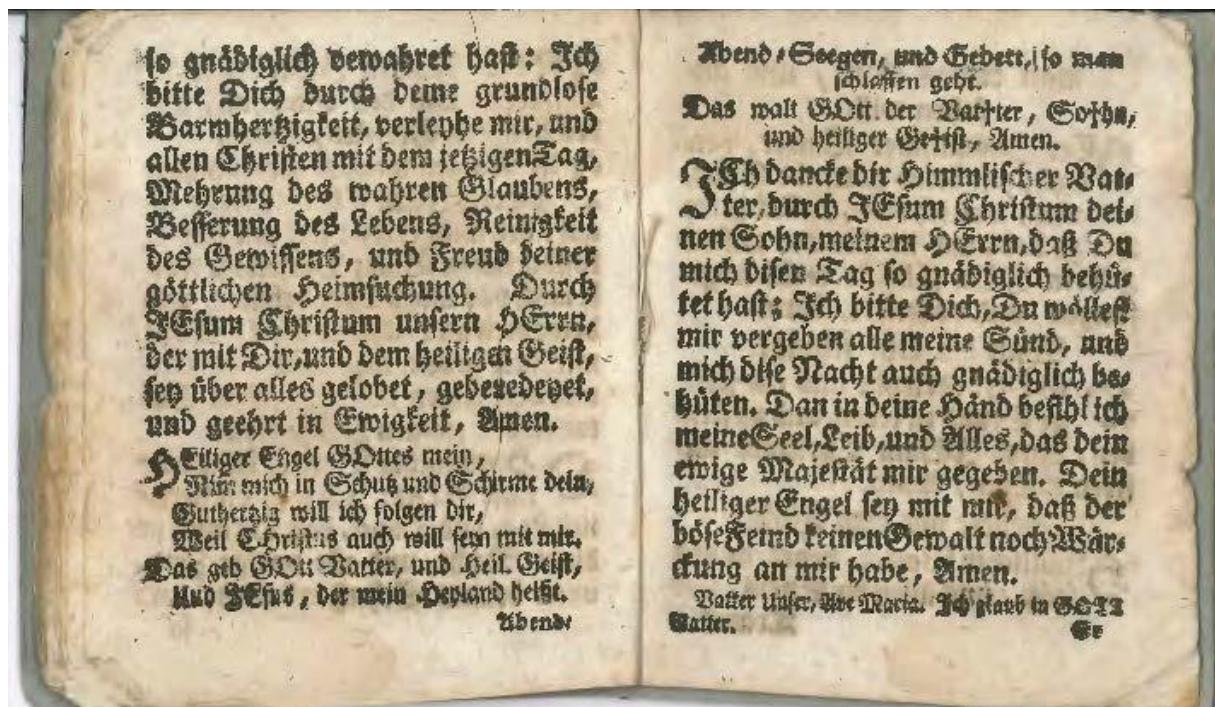 so gnädiglich bewahret hast: Ich
bitte Dich durch deine grundlose
Barmhertzigkeit, verleyhe mir, und
allen Christen mit dem jetzigen Tag,
Mehrung des wahren Glaubens,
Besserung des Lebens, Reinigkeit
des Gewissens, und Freud deiner
göttlichen Heimsuchung. Durch
JEsum Christum unsern HErrn,
der mit Dir, und dem heiligen Geist,
sey über alles gelobet, gebenedeyet,
und geehrt in Ewigkeit, Amen.
HEiliger Engel GOttes mein,
Nim mich in Schutz und Schirme dein,
Guthertzig will ich folgen dir,
Weil Christus auch will seyn mit mir.
Das geb GOtt Vatter, und Heil. Geist,
Und JEsus, der mein Heyland heißt.
Abend-
Abend-Seegen, und Gebett, so man
schlaffen geht.
Das walt GOtt der Vat†ter, So†hn,
und heiliger Ge†ist, Amen.
ICh dancke dir Himmlischer Vat-
ter, durch JEsum Christum dei-
nen Sohn, meinem HErrn, daß Du
mich disen Tag so gnädiglich behü-
tet hast; Ich bitte Dich, Du wöllest
mir vergeben alle meine Sünd, und
mich dise Nacht auch gnädiglich be-
hüten. Dan in deine Händ befihl ich
meine Seel, Leib, und Alles, das dein
ewige Majestät mir gegeben. Dein
heiliger Engel sey mit mir, daß der
böse Feind keinen Gewalt noch Wär-
ckung an mir habe, Amen.
Vatter Unser, Ave Maria. Ich glaub in GOTT
Vatter.
Er